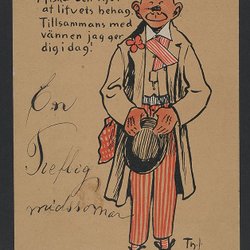 at lifvets behag.
Tillsammans med
vännen jag ger
dig i dag!
En
Treflig
midsommar